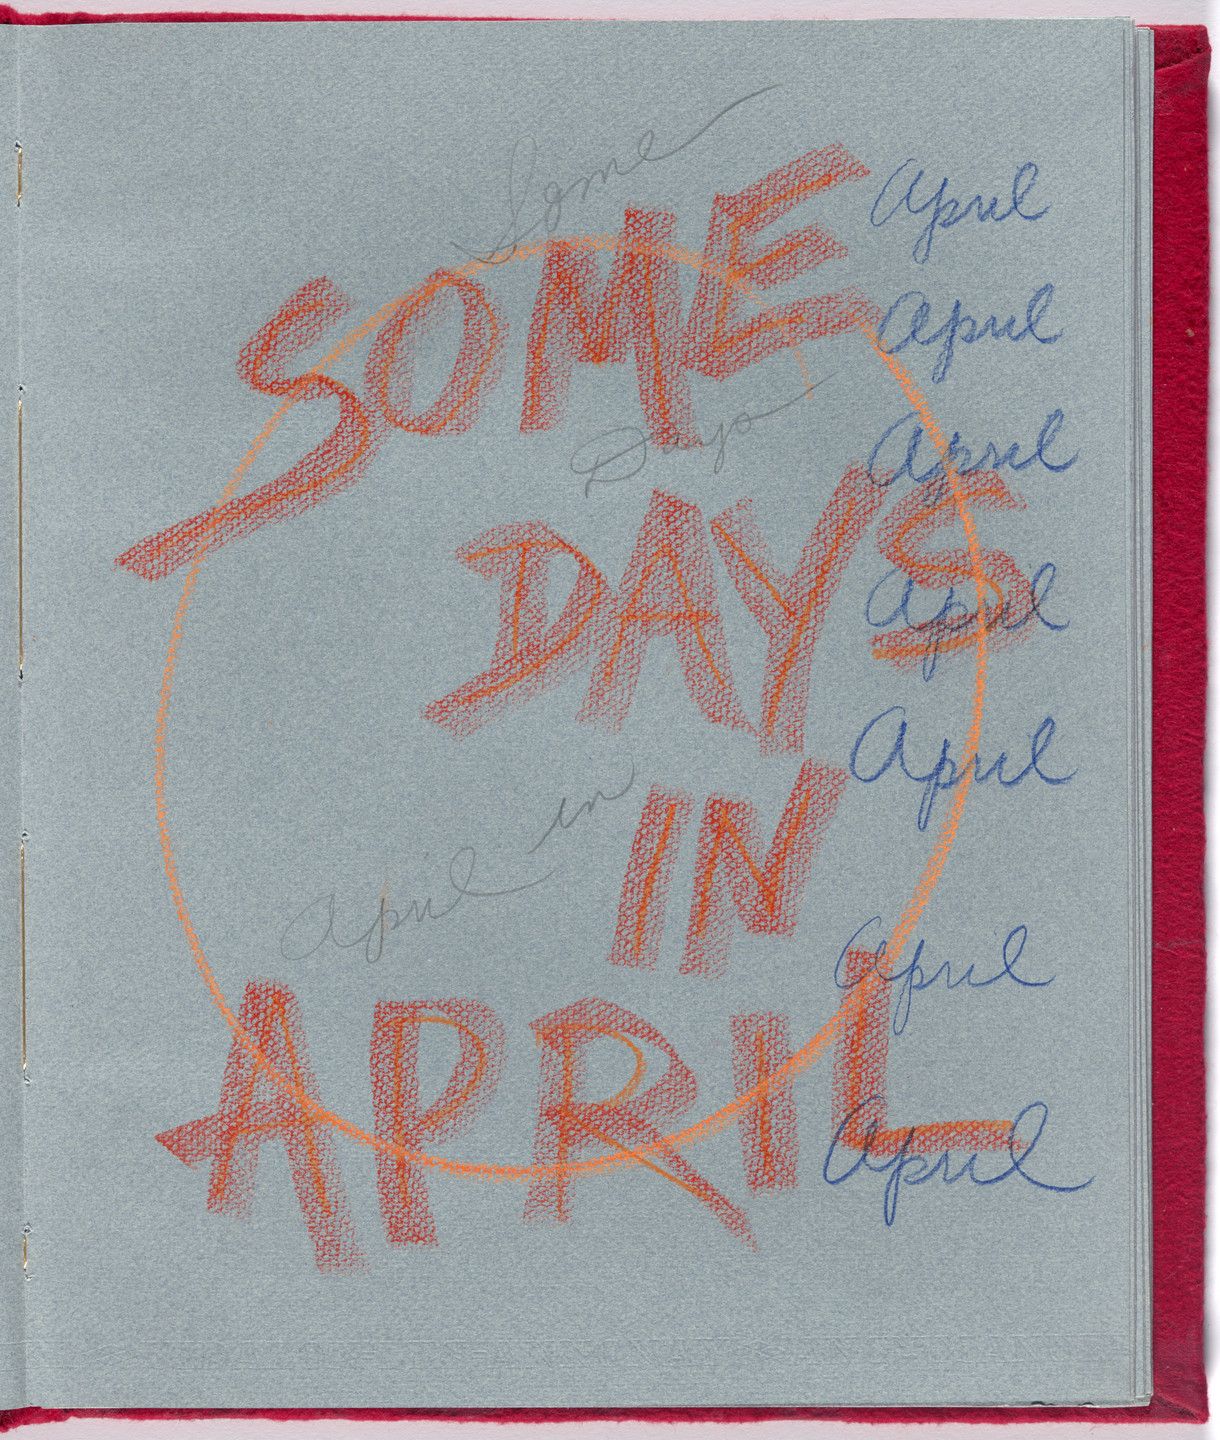 Some
SOME
April
April
Days
April
DAYS
April
April
IN
in
April
April
APRIL
April